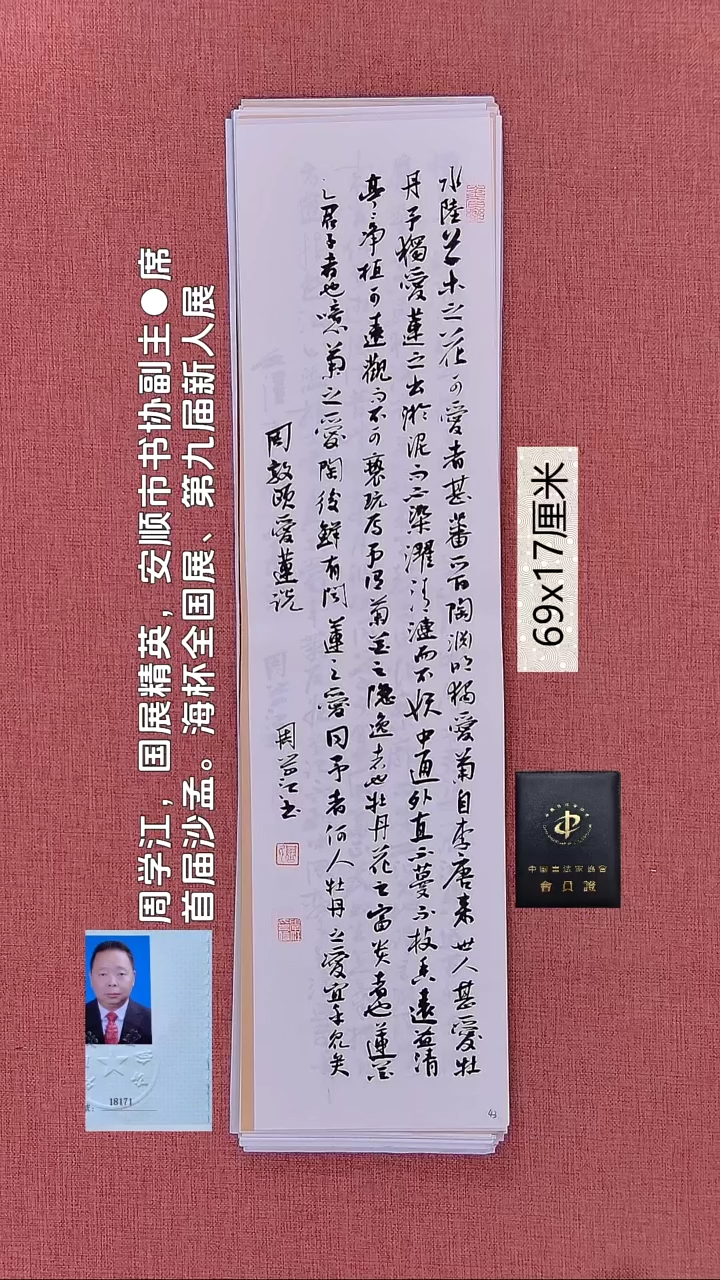 周学江，国展精英，安顺市书协副主●席
首届沙孟。海杯全国展、第九届新人展
水陸艸木之花可愛者甚蕃晋陶渊明獨愛菊自李唐来世人甚愛牡
丹予獨愛蓮之出淤泥而不染濯清漣而不妖中通外直不蔓不枝香遠益清
亭〻淨植可遠觀而不可褻玩焉予谓菊花之隐逸者也牡丹花之富贵者也蓮花
之君子者也噫菊之愛陶後鮮有闻蓮之愛同予者何人牡丹之愛宜乎衆矣
周敦颐愛蓮说
周学江书
69x17厘米
中国书法家协会
會員證
18171
43